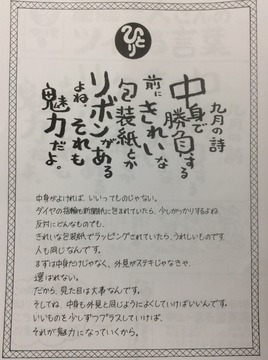 ひとり
九月の詩
中身で
勝負する
前にきれいな
包装紙とか
リボンがある
よね。それも
魅力だよ。
中身がよければ、いいってものじゃない。
ダイヤの指輪も新聞紙に包まれていたら、少しがっかりするよね。
反対にどんなものでも、
きれいな包装紙でラッピングされていたら、うれしいものです。
人も同じなんです。
まずは中身だけじゃなく、外見がステキじゃなきゃ、
選ばれない。
だから、見た目は大事なんです。
そしてね、中身も外見と同じようによくしていけばいいんです。
いいものを少しずつプラスしていけば、
それが魅力になっていくから。